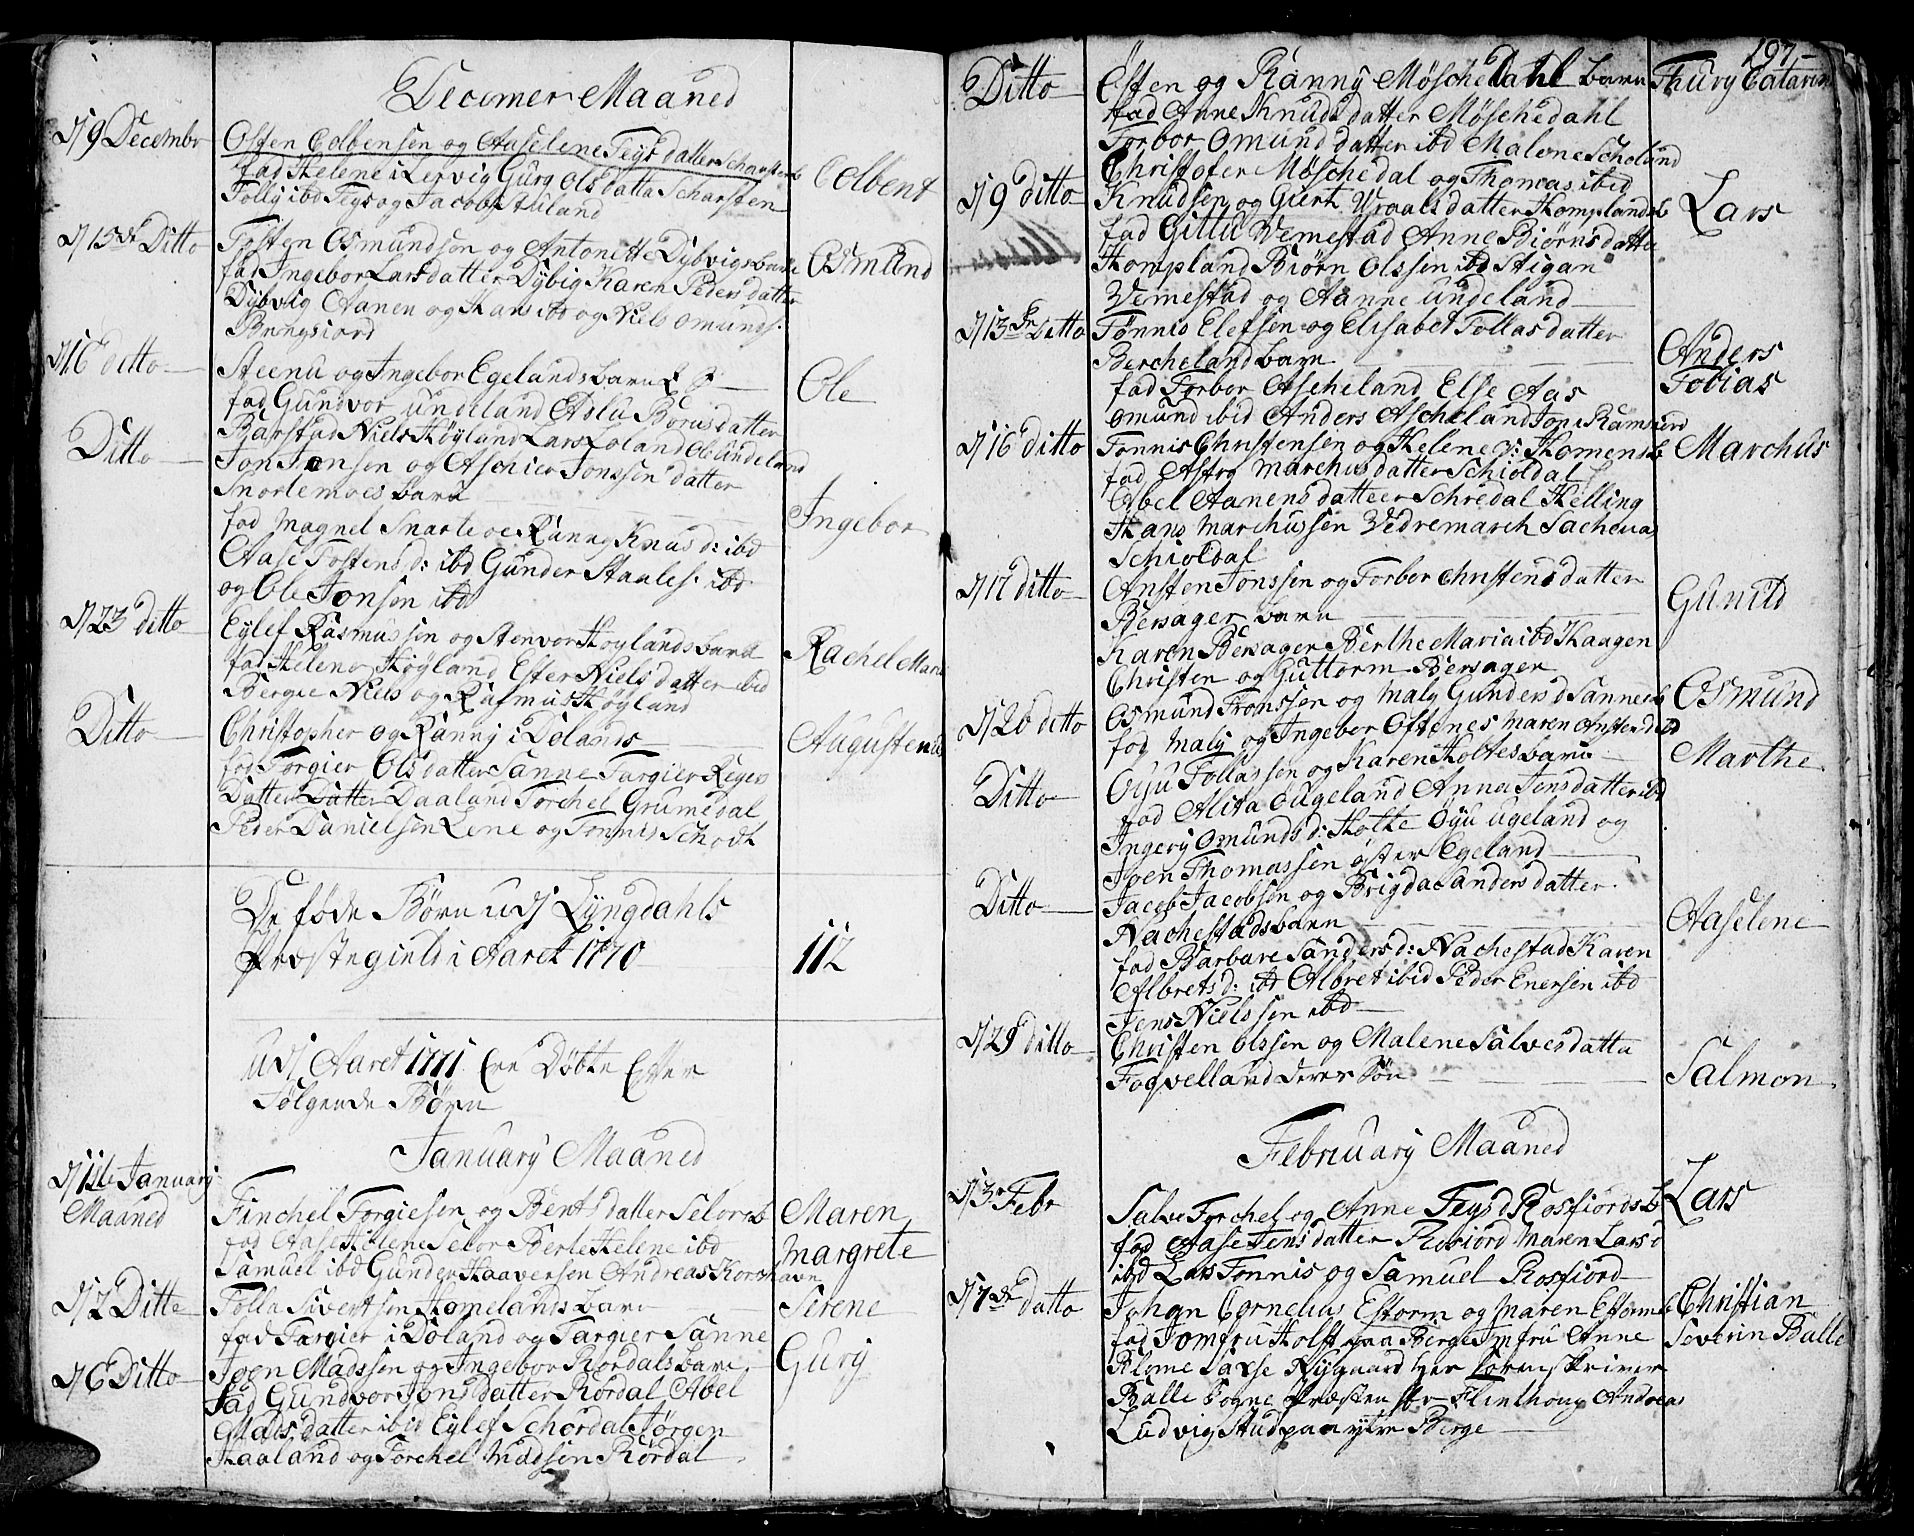 Decemer Maaned
d/9 Decembr
Osten Colbensen og Aaselene Teys datter Scharsten b
fad Helene i Lervig Gurg Ols datta Scharsten
Follg ibd Teys og Jacob Auland
Colbent
d/15de Ditto
Tosten Osmundsen og Antonette Dybvigs barn
fad Ingebor Lars datter Dybig Karen Peders datter
Dybvig Aanen og Hans ibd og Niels omunds.
Osmund
d/16 ditto
Steenu og Ingebor Egelands barn
fad Gundvor undeland Aslu Borus datter
Barstad Niels Høyland Lars Loland Ole undeland
Ole
Ditto
Jon Jonsen og Aschier Jonssen datter
Snartemoes barn
fad Magnel Snartemoe Ranng Knus d: ibd
Aase Tostens d: ibd Gunder Staales. ibd
og Ole Jonsen ibd
Ingebor
d/23 ditto
Eylef Rasmussen og Stenvor Høylands barn
fad Helena Høyland Ester Niels datter ibd
Bergie Niels og Rasmus Høyland
Rachel Maria
Ditto
Christopher og Ranny i Dolands
fad Torgier Ols datter Sanne Targier Reyers
Datter Datter Daaland Torchel Grumedal
Peder Danielsen Lene og Tønnis Schodt
Augustenus
De føde Børn udj Lyngdahls
Præstegield i Aaret 1770
112
Udj Aaret 1771 Ere Døbte Efter
Følgende Børn
January Maaned
d/1ste January
Maaned
Finchel Torgiesen og Bents datter Selors b
fad Aase Helene Selor Berte Helene ibd
Samuel ibd Gunder Haaversen Andreas Kors
Maren
Margrete
d/2 Ditto
Tolla Sivertsen Homelands barn
fad Targier i Doland og Targier Sanne
Serene
d/6 Ditto
Joen Madssen og Ingebor Rørdals barn
fad Gundvor Jons datter Rørdal Abel
Mads datter ibid Eylef Schordal Jørgen
Haaland og Torchel Madsen Rørdal
Gury
197
Ditto
Østen og Ranny Møschedahl barn
fad Anne Knuds datter Møschedahl
Torbor Omund datter ibd Malene Scholand
Christofer Møschedal og Thomas ibid
Thury Catarin
d/9 ditto
Knudsen og Giert Wraals datter Homplands b
fad Gittu Vemestad Anne Biørns datter
Hompland Biørn Olssen ibd Stigan
Vemestad og Aanne undeland
Lars
d/13de Ditto
Tønnis Elefsen og Elisabet Tollas datter
Bercheland barn
fad Torbor Ascheland Else Aas
omund ibid Anders Ascheland Jon Ramsiord
Anders
Tobias
d/16 ditto
Tonnis Christensen og Helene d: Homens b
fad Astrg Marchus datter Schioldal
Abel Aanens datter Schredal Helling
Hans Marchussen Vedremarch Sacheus
Schioldal
Marchus
d/17 ditto
Ansten Jonssen og Torbor Christens datter
Bersager barn
Karen Bersager Berthe Maria ibd Haagen
Christen og Guttorm Bersager
Gunild
d/26 ditto
Osmund Tronssen og Maly Gunders d Sannes b
fad Maly og Ingebor Oftenes Maren Anstens d ibd
Osmund
Ditto
Oyu Tollassen og Karen Holtes barn
fad Alita Ougeland Anne Jens datter ibd
Ingery Omunds d: Holte Oyu ugeland og
Joen Thomassen øster Egeland
Marthe
Ditto
Jacob Jacobsen og Brigda Sanders datter
Nachestads barn
fad Barbare Sanders d: Nachestad Karen
Albrets d: ibd Albret ibid Peder Enersen ibd
Jens Nielssen ibd
Aaselene
d/29 ditto
Christen olssen og Malene Salves datta
Foqvelland deres Søn
Salmon
February Maaned
d/3 Febr
Salve Torchel og Anne Teys d Rosfiords b
fad Aase Jens datter Rosiord Maren Lars d
ibd Lars Tonnis og Samuel Rosfiord
Lars
d/7de datto
Johan Cornelius Estorm og Maren Estorms b
fad Jomfru Holft paa Berge Jmfru Anne
Rleme Laxse Nygaard Her Sorenskriver
Balle Sogne Præsten Hr Flinthoug Andreas
Ludvig Hud paa ytre Berge
Christian
Severin Balle